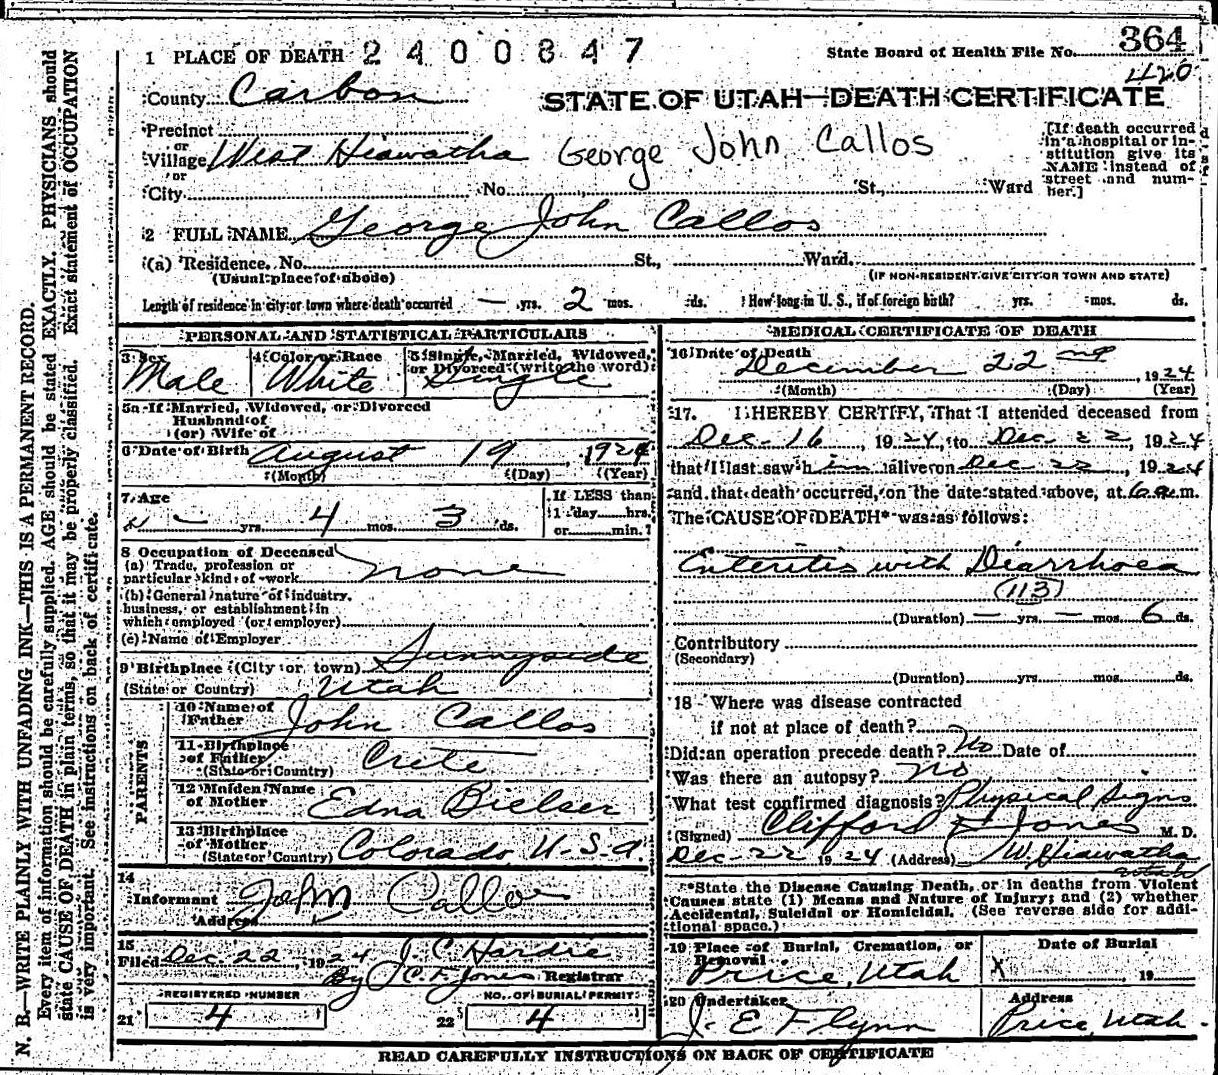 1 PLACE OF DEATH 2400847
State Board of Health File No. 364
420
County Carbon
STATE OF UTAH—DEATH CERTIFICATE
Precinct
or
Village West Hiawatha
George John Callos
[If death occurred in a hospital or institution give its NAME instead of street and number.]
or
City No. St., Ward
2 FULL NAME George John Callos
(a) Residence, No. St., Ward.
(Usual place of abode) (IF NON-RESIDENT GIVE CITY OR TOWN AND STATE)
Length of residence in city or town where death occurred — yrs. 2 mos. ds. How long in U. S., if of foreign birth? yrs. mos. ds.
PERSONAL AND STATISTICAL PARTICULARS
3 Sex Male
4 Color or Race White
5 Single, Married, Widowed, or Divorced (write the word) Single
5a If Married, Widowed, or Divorced
Husband of
(or) Wife of
6 Date of Birth August 19, 1924
(Month) (Day) (Year)
7 Age — yrs. 4 mos. 3 ds.
If LESS than 1 day hrs. or min.?
8 Occupation of Deceased
(a) Trade, profession or particular kind of work none
(b) General nature of industry, business, or establishment in which employed (or employer)
(c) Name of Employer
9 Birthplace (City or town) Sunnyside
(State or Country) Utah
PARENTS
10 Name of Father John Callos
11 Birthplace of Father (State or Country) Crete
12 Maiden Name of Mother Edna Bielser
13 Birthplace of Mother (State or Country) Colorado, U.S.A.
14
Informant John Callos
Address
15
Filed Dec 22, 1924 J. C. Hardie
By C. F. Jones Registrar
REGISTERED NUMBER NO. OF BURIAL PERMIT
21 4 22 4
MEDICAL CERTIFICATE OF DEATH
16 Date of Death
December 22nd, 1924
(Month) (Day) (Year)
17. I HEREBY CERTIFY, That I attended deceased from
Dec. 16, 1924, to Dec 22, 1924
that I last saw him alive on Dec 22, 1924
and that death occurred, on the date stated above, at 6 a.m.
The CAUSE OF DEATH* was as follows:
Enteritis with Diarrhoea
(113)
(Duration) — yrs. — mos. 6 ds.
Contributory
(Secondary)
(Duration) yrs. mos. ds.
18 Where was disease contracted
if not at place of death?
Did an operation precede death? No Date of
Was there an autopsy? no
What test confirmed diagnosis? Physical signs
(Signed) Clifford F Jones M. D.
Dec-22 1924 (Address) W. Hiawatha
Utah
*State the Disease Causing Death, or in deaths from Violent
Causes state (1) Means and Nature of Injury; and (2) whether
Accidental, Suicidal or Homicidal. (See reverse side for additional space.)
19 Place of Burial, Cremation, or Removal Price, Utah
Date of Burial X, 19
20 Undertaker J. E Flynn
Address Price, Utah
READ CAREFULLY INSTRUCTIONS ON BACK OF CERTIFICATE
N. B.—WRITE PLAINLY WITH UNFADING INK—THIS IS A PERMANENT RECORD.
Every item of information should be carefully supplied. AGE should be stated EXACTLY. PHYSICIANS should
state CAUSE OF DEATH in plain terms, so that it may be properly classified. Exact statement of OCCUPATION
is very important. See instructions on back of certificate.